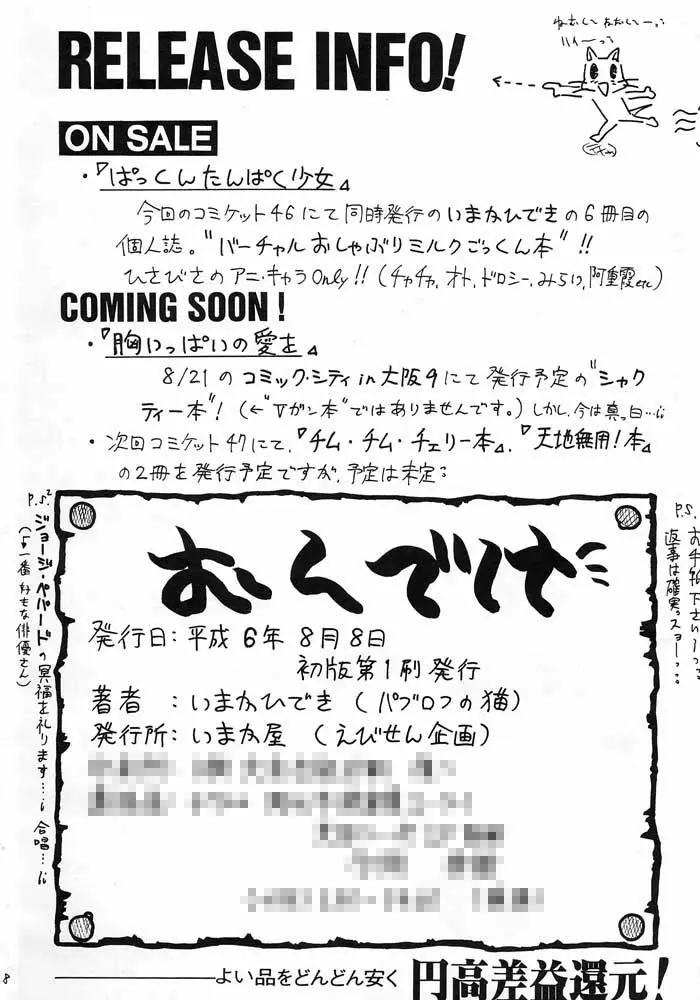 RELEASE INFO!
ハイーっ
ON SALE
・『ぱっくんたんぱく少女』
今回のコミケット46にて同時発行のいまかひできの6冊目の
個人誌。"バーチャルおしゃぶりミルクごっくん本"!!
ひさびさのアニ・キャラOnly!! (チャチャ,オト,ドロシー,みらい,阿重霞etc)
COMING SOON!
・『胸いっぱいの愛を』
8/21のコミック・シティin大阪9にて発行予定の"シャク
ティー本"! (←"Vガン本"ではありませんです。) しかし、今は真っ白…
・次回コミケット47にて、『チム・チム・チェリー本』、『天地無用!本』
の2冊を発行予定ですが、予定は未定:
P.S.²
ジョージ・ペパードの冥福を祈ります… 合唱…
(一番好きな俳優さん)
P.S.
お手紙下さいーっ
返事は確実っスョーっ
おくづけ
発行日:平成6年8月8日
初版第1刷発行
著者 :いまかひでき (パブロフの猫)
発行所:いまか屋 (えびせん企画)
8
よい品をどんどん安く 円高差益還元!